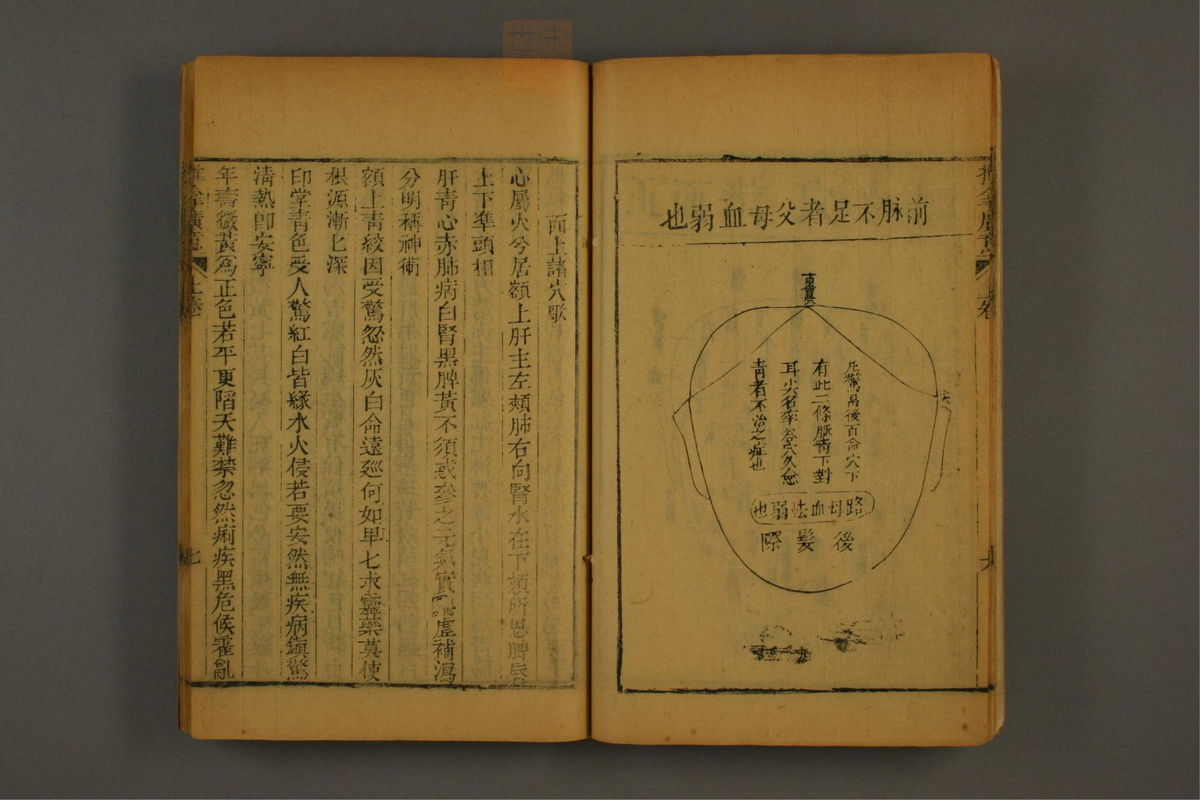 前脉不足者父母血弱也
百會
凡驚吊後百命穴下
有此二條脈青下對
耳尖名率谷穴久愈
青者不治之症也
路母血怯弱也
後髮際
推拿廣意
上卷
面上諸穴歌
心屬火兮居額上肝主左頰肺右向腎水在下頦所思脾
上下準頭相
肝青心赤肺病白腎黑脾黃不須惑參之元氣實虛補瀉
分明稱神術
額上青紋因受驚忽然灰白命遠廵何如早七求靈藥莫使
根源漸匕深
印堂青色受人驚紅白皆緣水火侵若要安然無疾病鎮驚
清熱卽安寧
年壽微黃為正色若平更陷夭難禁忽然痢疾黑危候霍亂
推拿廣意
上卷
七